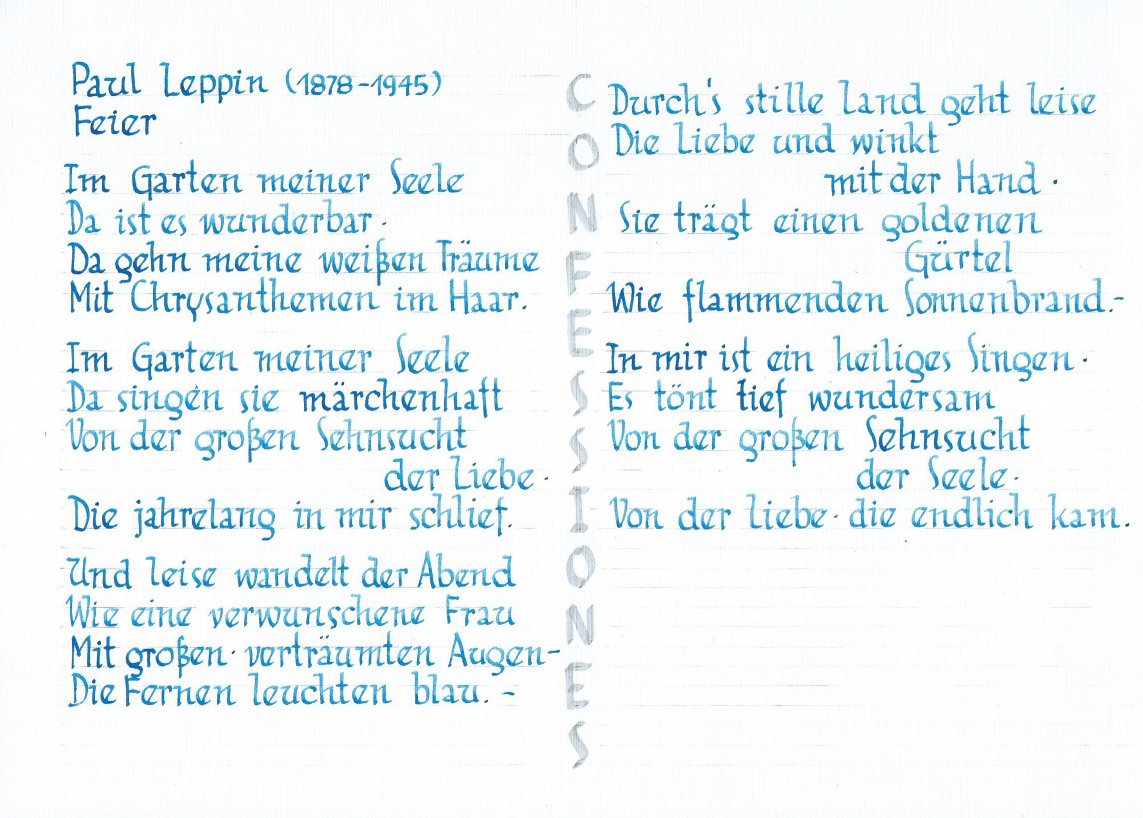 Paul Leppin (1878-1945)
Feier
Im Garten meiner Seele
Da ist es wunderbar·
Da gehn meine weißen Träume
Mit Chrysanthemen im Haar.
Im Garten meiner Seele
Da singen sie märchenhaft
Von der großen Sehnsucht
der Liebe·
Die jahrelang in mir schlief.
Und leise wandelt der Abend
Wie eine verwunschene Frau
Mit großen· verträumten Augen-
Die Fernen leuchten blau. -
CONFESSIONES
Durch's stille Land geht leise
Die Liebe und winkt
mit der Hand·
Sie trägt einen goldenen
Gürtel
Wie flammenden Sonnenbrand.-
In mir ist ein heiliges Singen·
Es tönt tief wundersam
Von der großen Sehnsucht
der Seele·
Von der Liebe· die endlich kam.